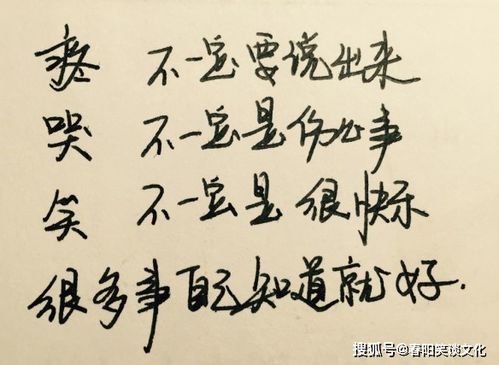 疼 不一定要说出来
哭 不一定是伤心事
笑 不一定是很快乐
很多事自己知道就好.
搜狐号@春阳笑谈文化